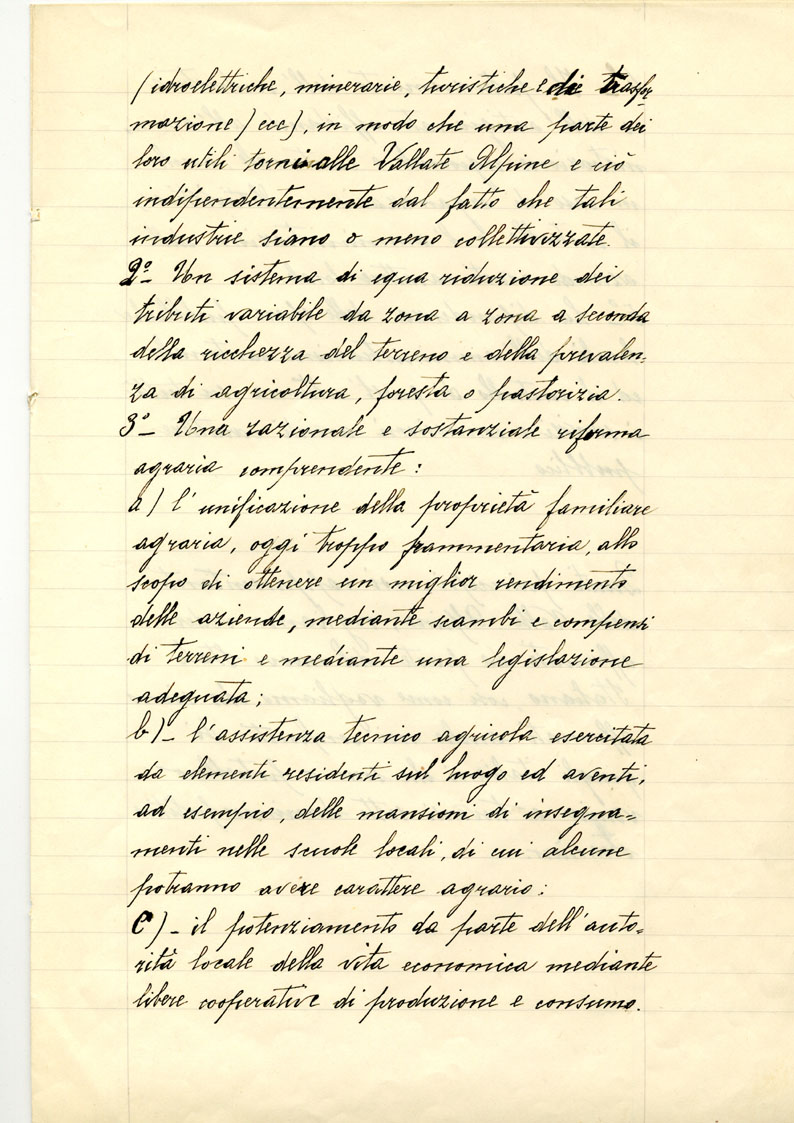 (idroelettriche, minerarie, turistiche e di trasfor-
mazione) ecc), in modo che una parte dei
loro utili torni alle Vallate Alpine e ciò
indipendentemente dal fatto che tali
industrie siano o meno collettivizzate.
2º- Un sistema di equa riduzione dei
tributi variabile da zona a zona a seconda
della ricchezza del terreno e della prevalen=
za di agricoltura, foresta o pastorizia.
3º- Una razionale e sostanziale riforma
agraria comprendente:
a) l'unificazione della proprietà familiare
agraria, oggi troppo frammentaria, allo
scopo di ottenere un miglior rendimento
delle aziende, mediante scambi e compensi
di terreni e mediante una legislazione
adeguata;
b)- l'assistenza tecnico agricola esercitata
da elementi residenti sul luogo ed aventi,
ad esempio, delle mansioni di insegna=
menti nelle scuole locali, di cui alcune
potranno avere carattere agrario:
C)- il potenziamento da parte dell'auto=
rità locale della vita economica mediante
libere cooperative di produzione e consumo.